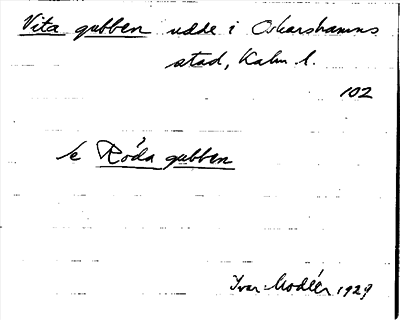 Vita gubben udde i Oskarshamns
stad, Kalm l.
102
se Röda gubben
Ivar Modéer 1929